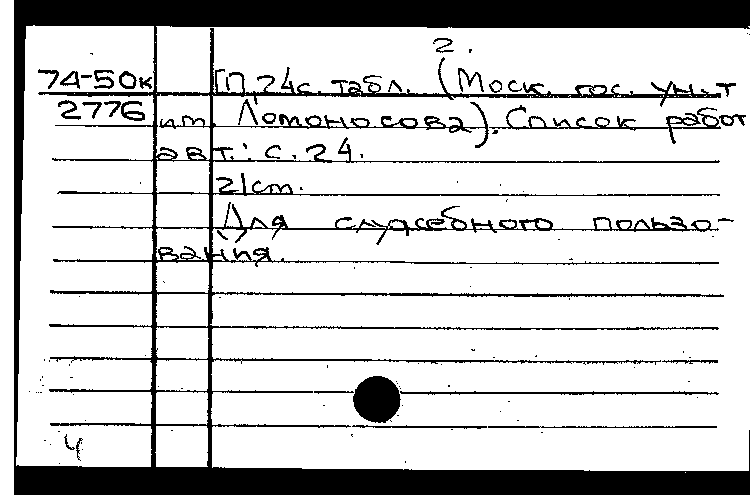 2.
74-50к [П], 24с. табл. (Моск. гос. ун.т
2776 им. Ломоносова). Список работ
авт.: с. 24.
21cm.
Для служебного пользо-
вания.
4